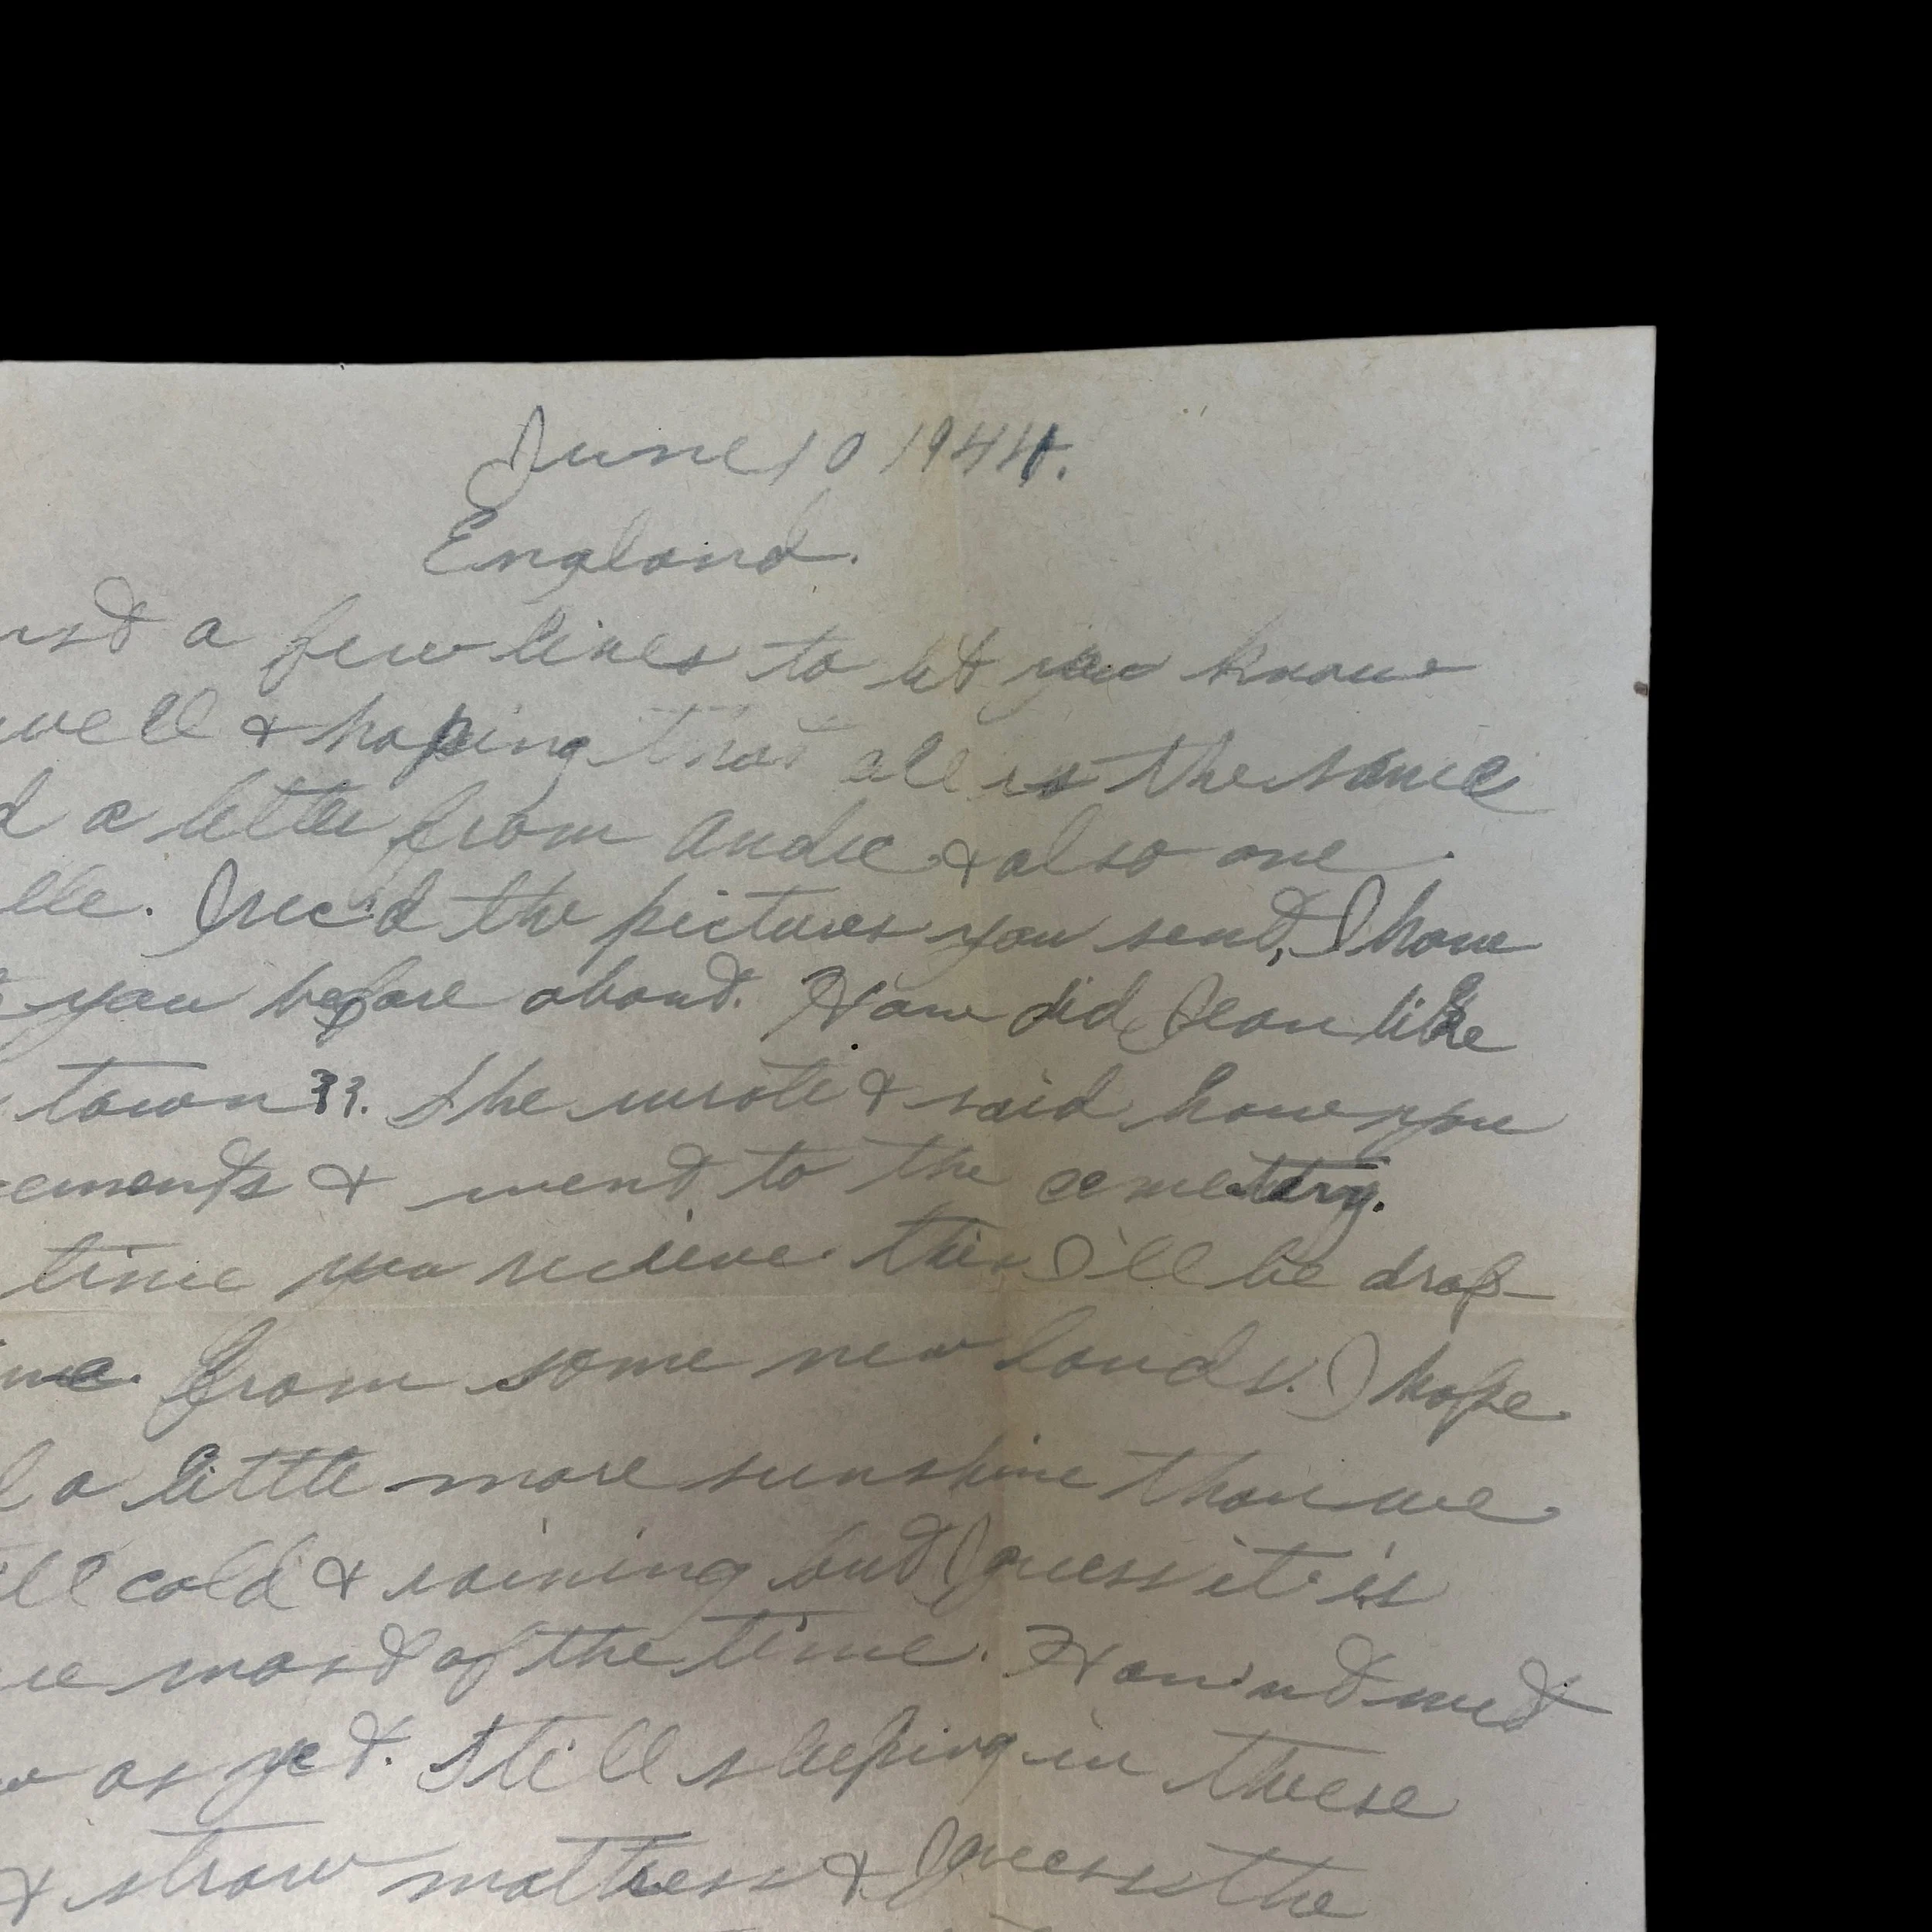 June 10 1944.
England.
a few lines to let you know
well & hoping that all is the same
a letter from Andie & also one
elle. I rec'd the pictures you send, I have
you before about. How did Jean like
town??. She wrote & said how you
ements & went to the cemettry.
time you recieve this I'll be drop-
from some new lands. I hope
a little more sunshine than we
cold & raining but I guess it is
most of the time. Haven't met
as yet. Still sleeping in these
& straw mattress & I guess the